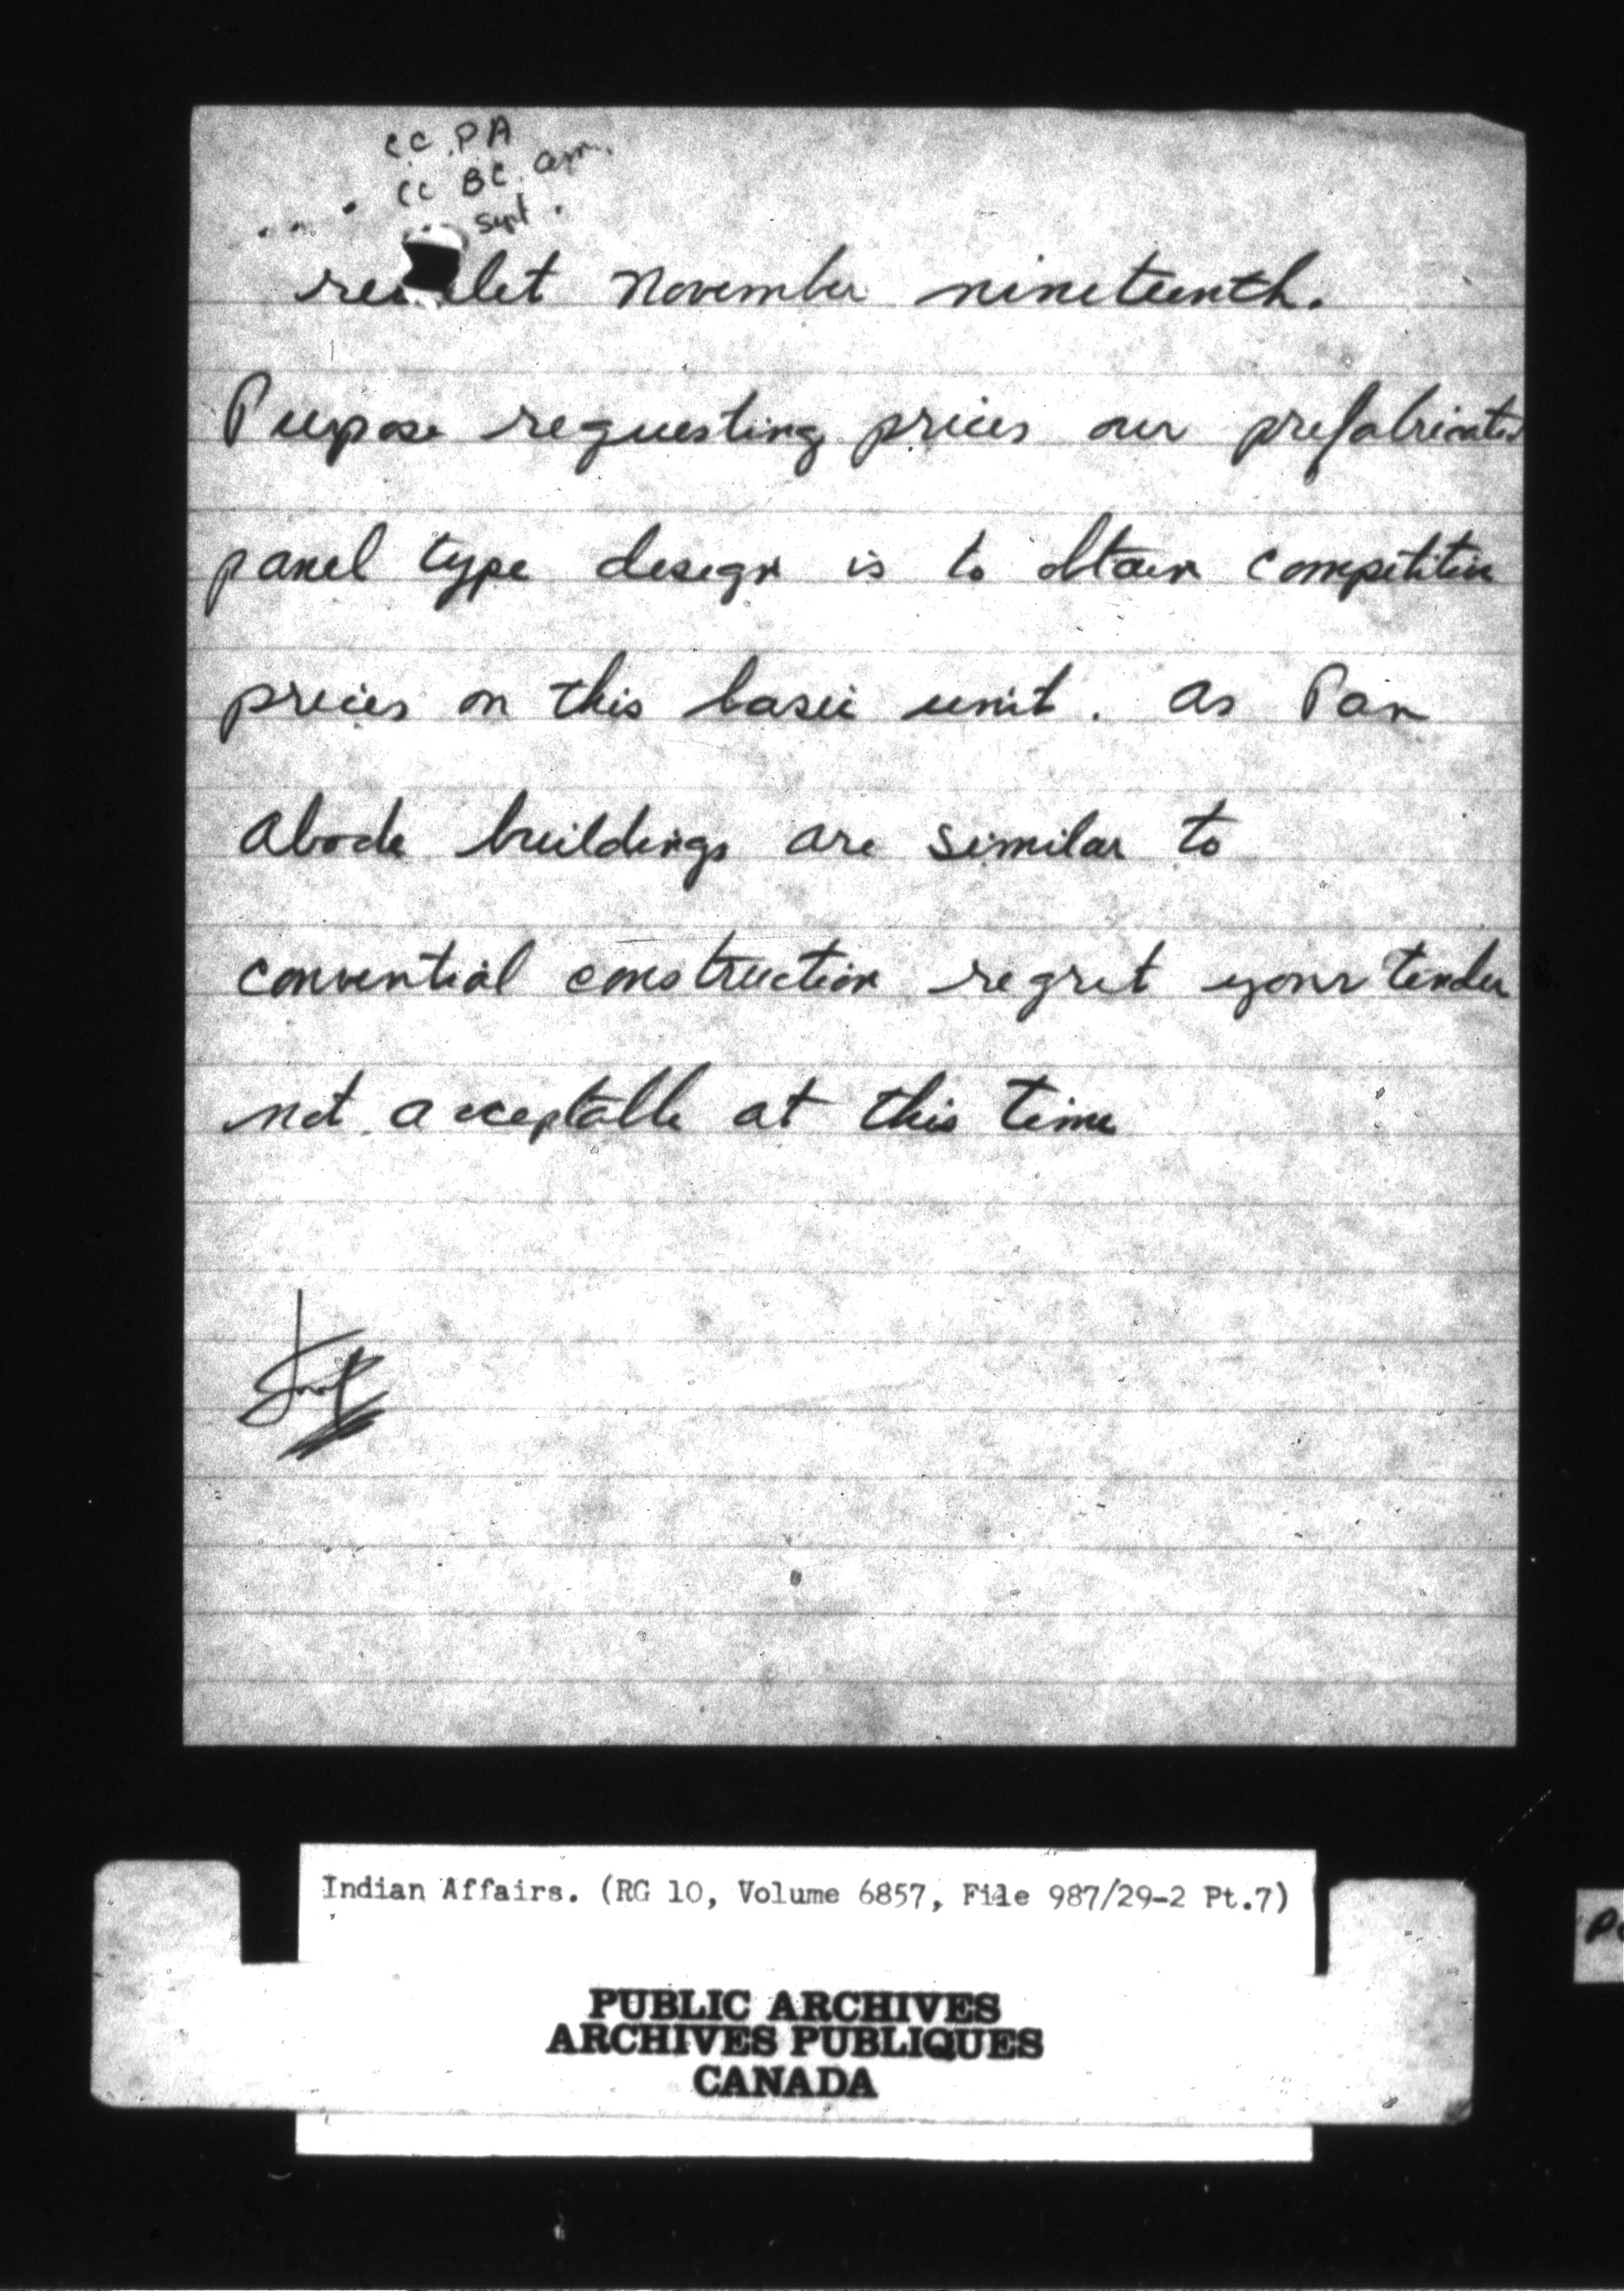 CC. PA
CC BC. Com.
Supt.
reurlet November nineteenth.
Purpose requesting prices our prefabricated
panel type design is to obtain competitive
prices on this basic unit. As Pan
Abode buildings are similar to
convential construction regret your tender
not acceptable at this time
Indian Affairs. (RG 10, Volume 6857, File 987/29-2 Pt.7)
PUBLIC ARCHIVES
ARCHIVES PUBLIQUES
CANADA